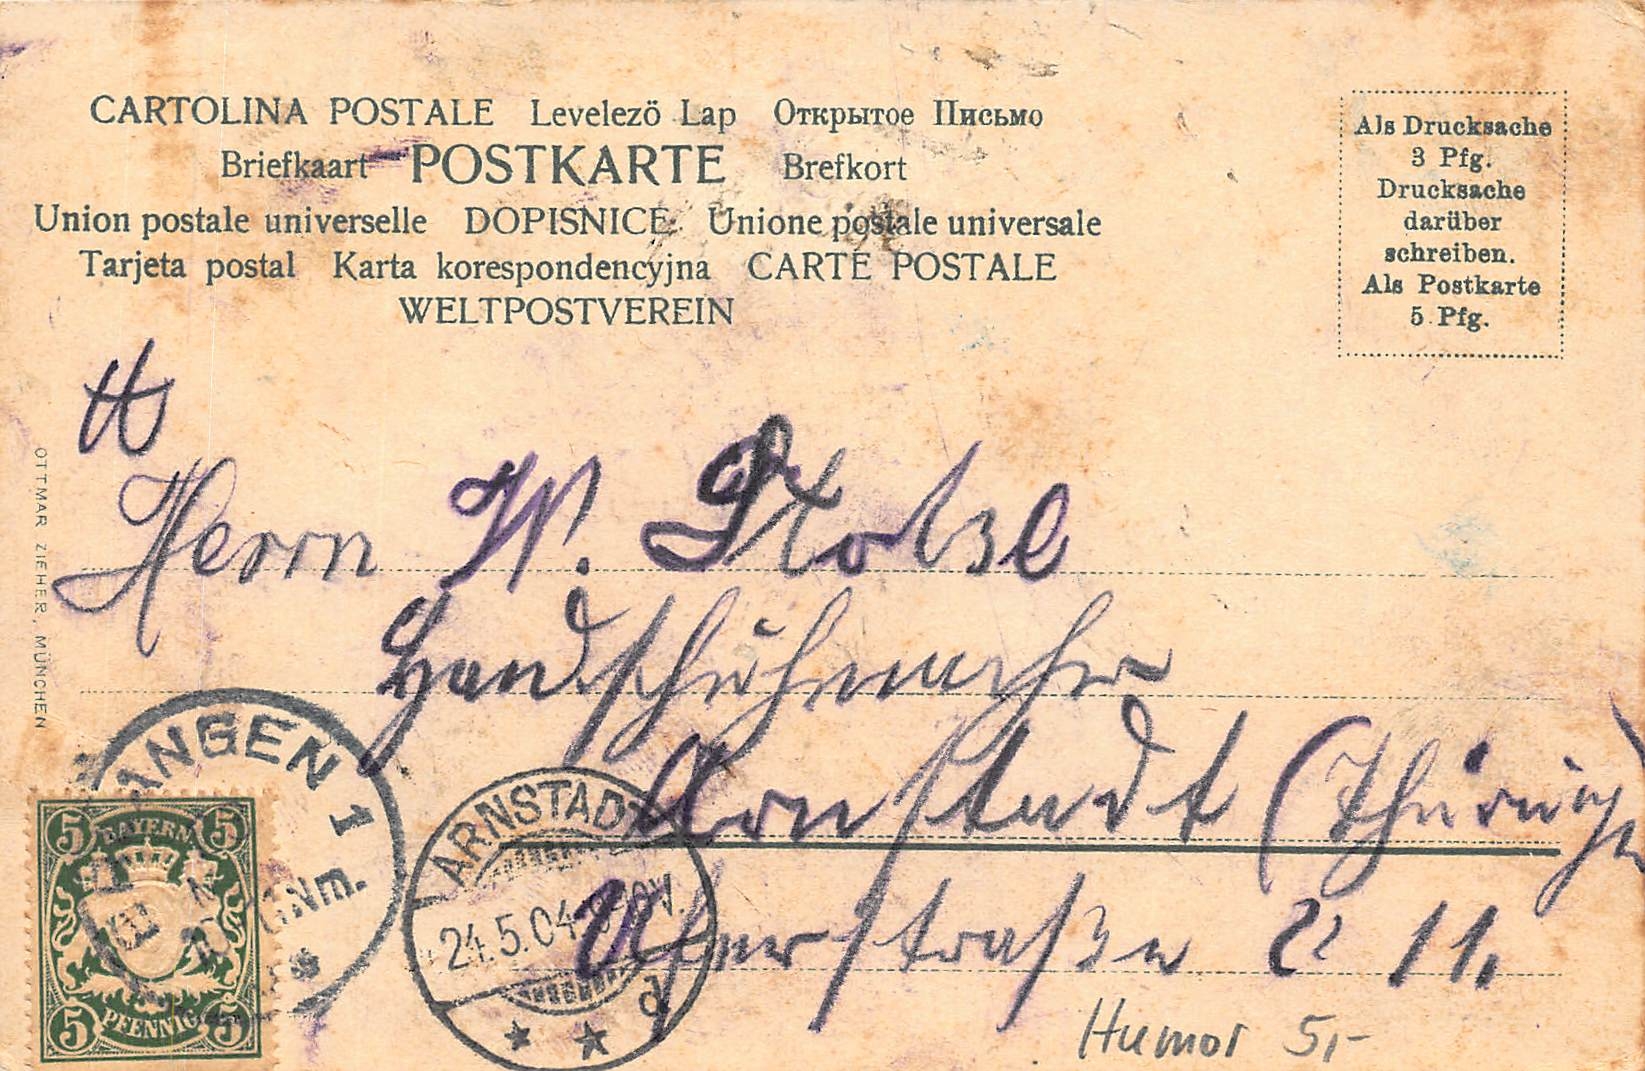 CARTOLINA POSTALE Levelezö Lap Открытое Письмо
Briefkaart POSTKARTE Brefkort
Union postale universelle DOPISNICE Unione postale universale
Tarjeta postal Karta korespondencyjna CARTE POSTALE
WELTPOSTVEREIN
Als Drucksache
3 Pfg.
Drucksache
darüber
schreiben.
Als Postkarte
5 Pfg.
Herrn W.
Handschuhmacher
Arnstadt (Thüringen
Uferstraße 11.
OTTMAR ZIEHER, MÜNCHEN
ANGEN 1
Nm.
5 BAYERN 5
5 PFENNIG 5
ARNSTADT
24.5.04
d
Humor 5,-